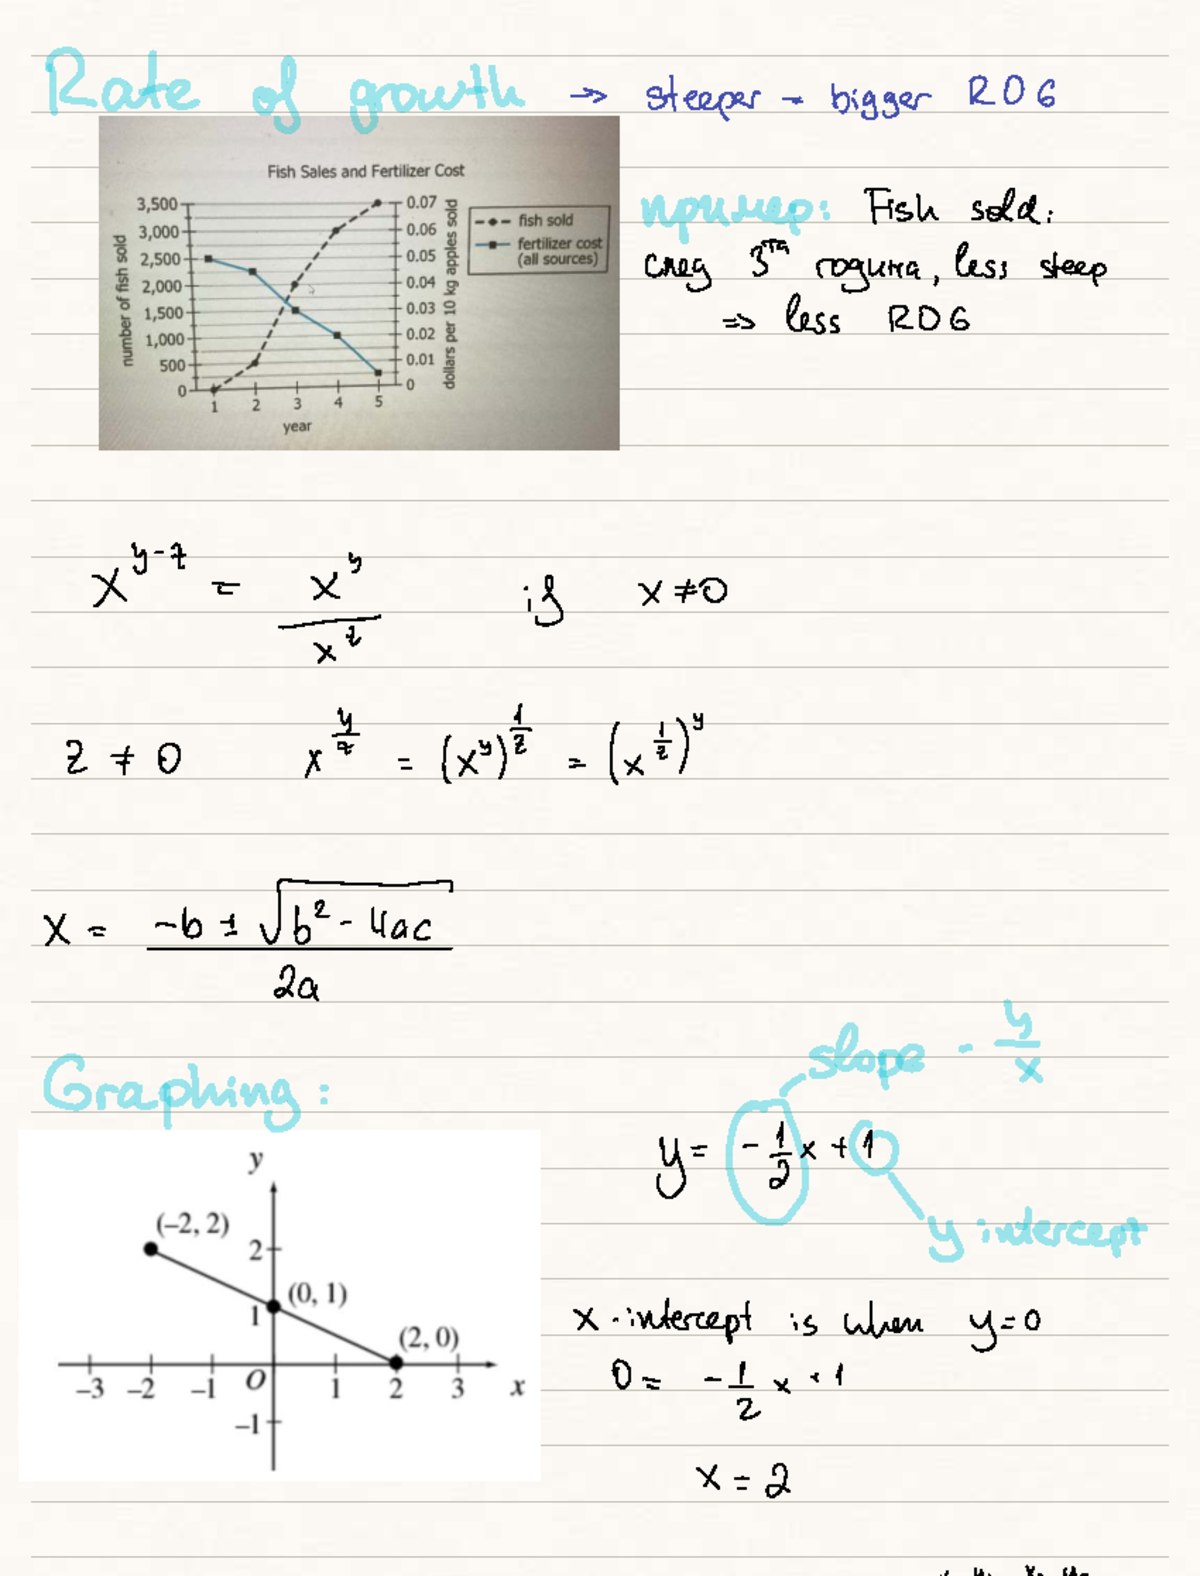 Rate of growth → steeper - bigger ROG
Fish Sales and Fertilizer Cost
number of fish sold
3,500
3,000
2,500
2,000
1,500
1,000
500
0
0.07
0.06
0.05
0.04
0.03
0.02
0.01
0
dollars per 10 kg apples sold
1 2 3 4 5
year
fish sold
fertilizer cost
(all sources)
пример: Fish sold:
след 3та година, less steep
=> less ROG
x^{y-z} = x^y / x^z if x ≠ 0
z ≠ 0 x^{y/z} = (x^y)^{1/z} = (x^{1/z})^y
x = (-b ± √(b² - 4ac)) / 2a
Graphing:
slope - y/x
y = -1/2 x + 1
y intercept
y
(–2, 2)
2
(0, 1)
1
(2, 0)
–3 –2 –1 O 1 2 3 x
–1
x-intercept is when y=0
0 = -1/2 x + 1
x = 2